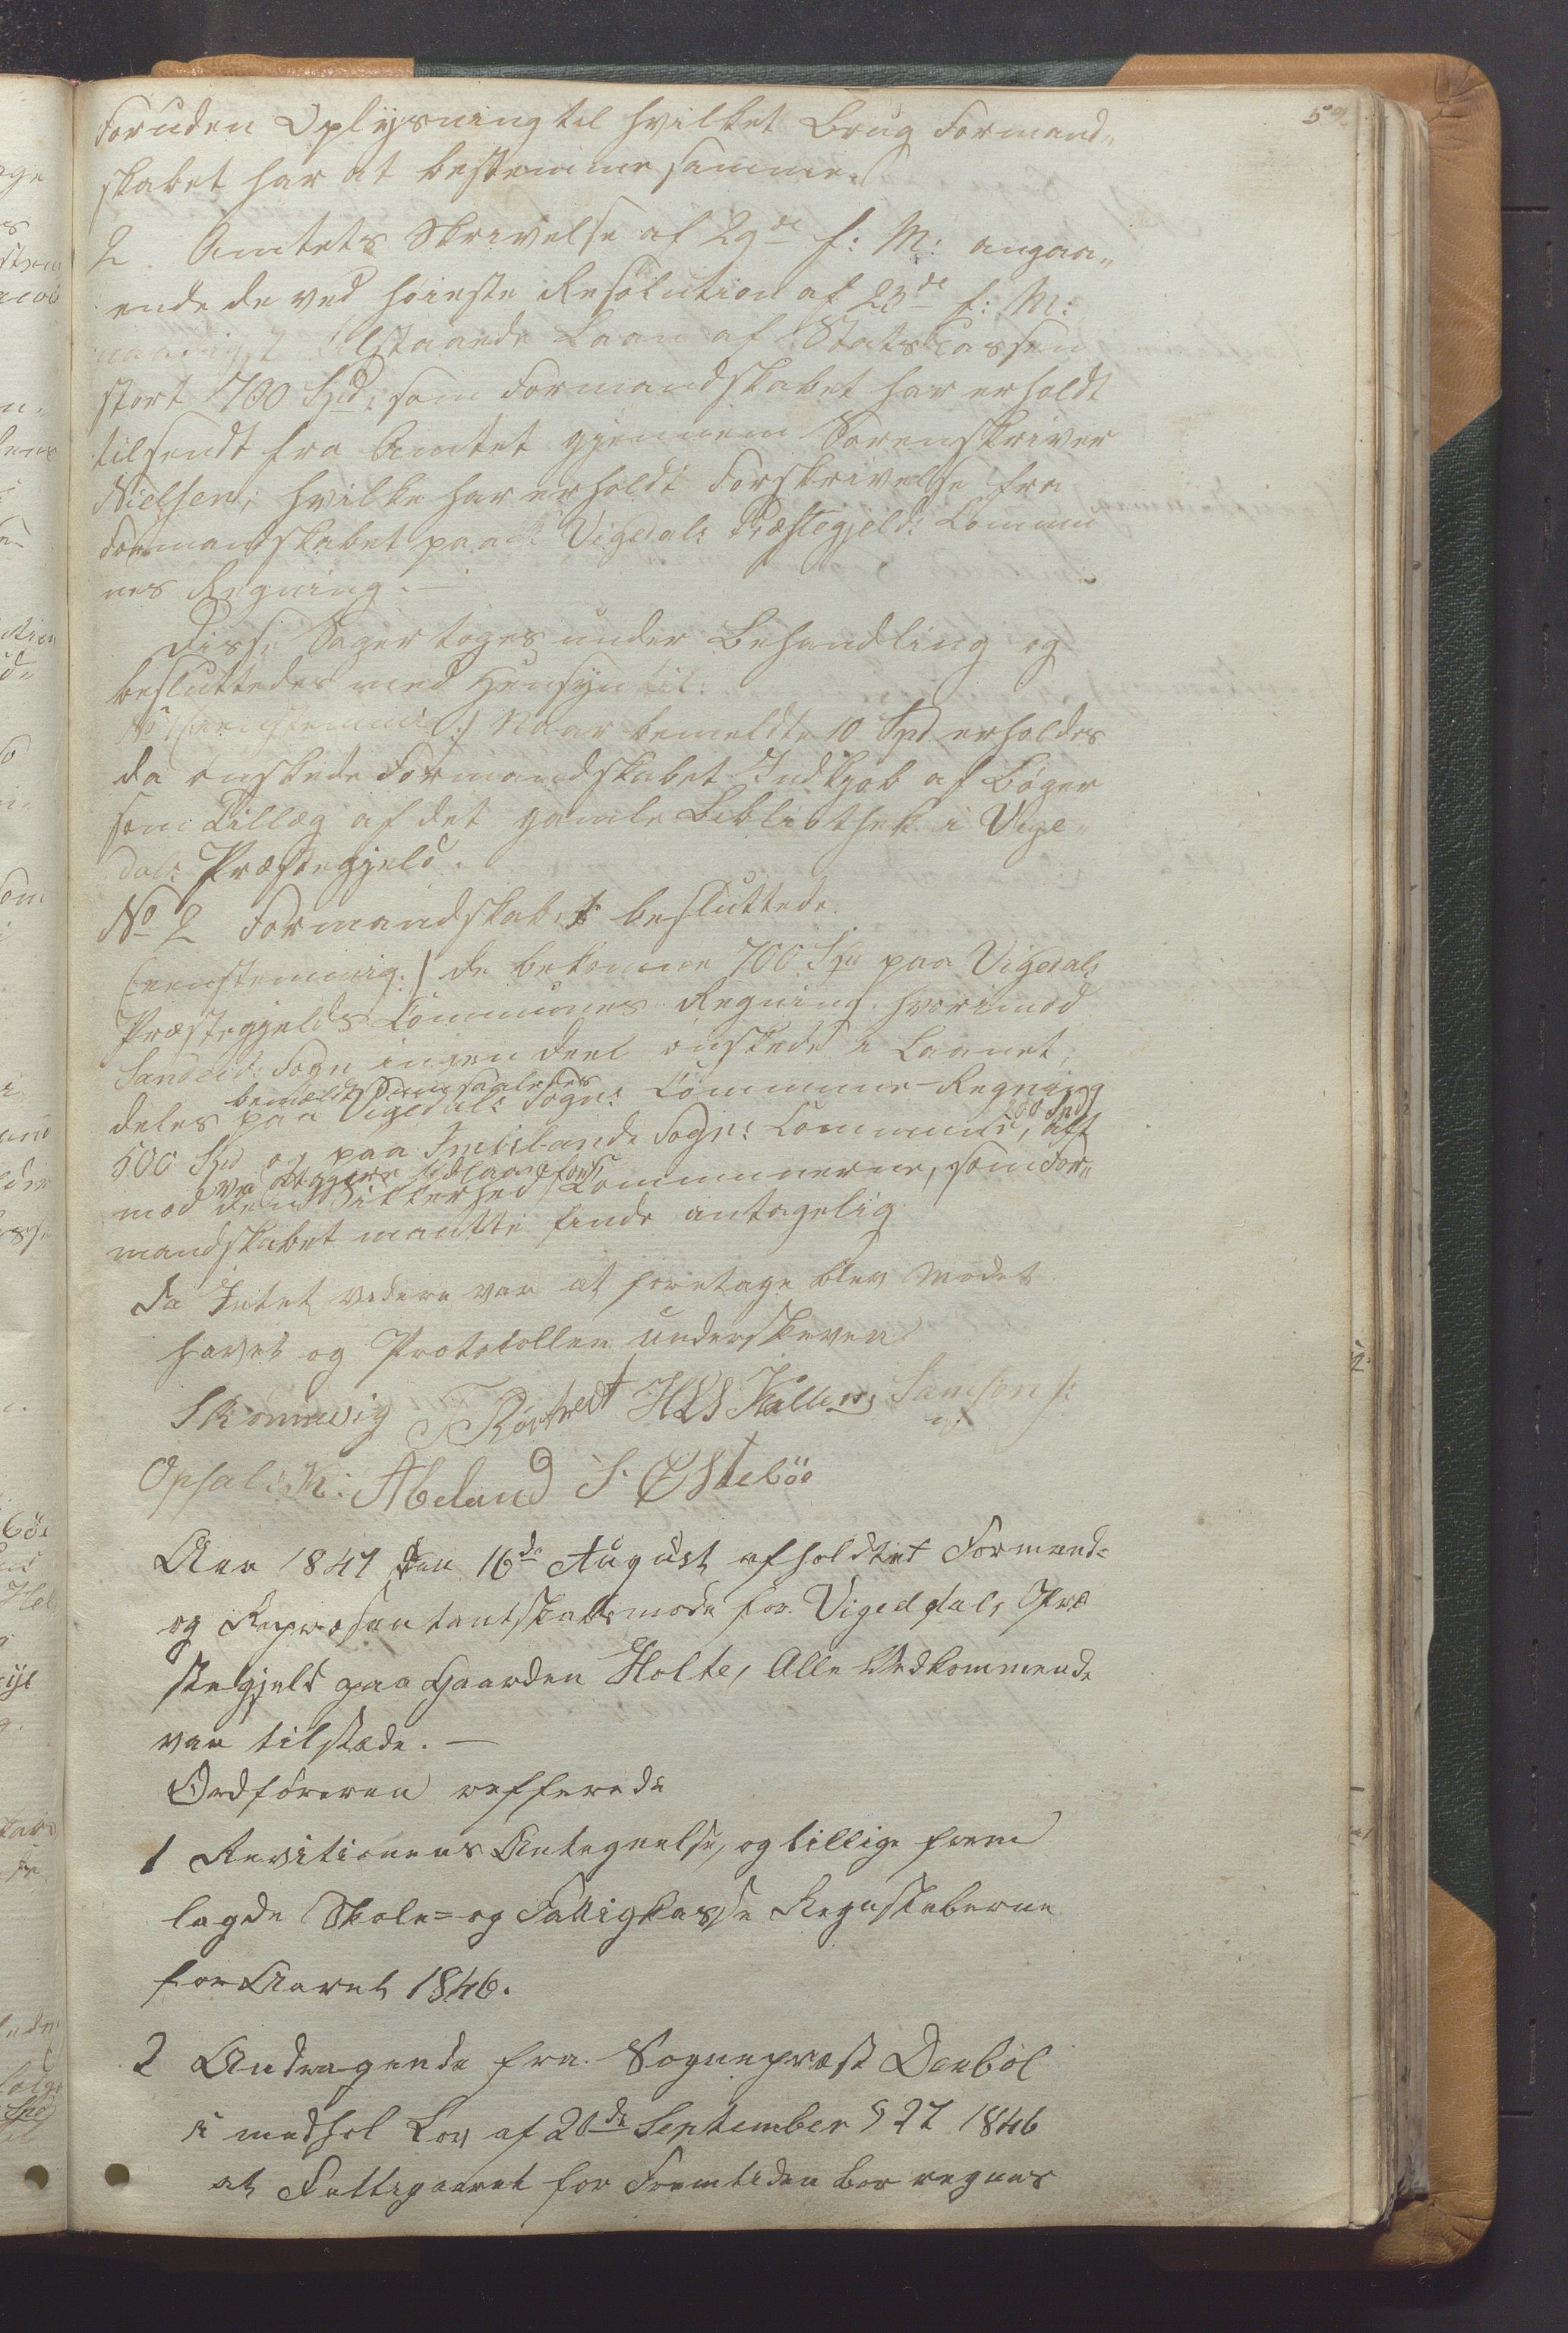 59.
Foruden Oplysning til hvilket Brug Formand„
skabet har at bestemme samme.
2. Amtets Skrivelse af 29de f: M: angaa„
ende de ved høieste Resolution af 23de f: M:
naadigst tilstaaede Laan af Statskassen
stort 700 Spd, som Formandskabet har erholdt
tilsendt fra Amtet gjennem Sorenskriver
Nielsen; hvilke har erholdt Forskrivelse fra
Formandskabet paa Vigedals Præstegjelds Commu
nes Regning. —
Disse Sager toges under Behandling og
besluttedes med Hensyn til:
No 1 (eenstemmig:) Naar bemeldte 10 Spd erholdes
da ønskede Formandskabet Indkjøb af Bøger
som Tillæg af det gamle Bibliothek i Vige
dals Præstegjeld.
No 2 Formandskabet besluttede
(eenstemmig:) de bekomne 700 Spd paa Vigedals
Præstegjelds Communes Regning hvorimod
Sandeids Sogn ingen Deel ønskede i Laanet,
bemeldte Sum saaledes
deles paa Vigedals Sogns Commune-Regning
500 Spd og paa Imslands Sogns Commune, 200 Spd alt
mod den Sikkerhed Communerne, som For„
mandskabet maatte finde antagelig
Da Intet videre var at foretage blev Mødet
hævet og Protokollen underskreven
Skonnevig T Rørtvedt HLS Hallens Samson s:
Opsal: M: Abeland S. Østebøe
Aar 1847 den 16de August afholdtes Formands
og Repræsentantskabsmøde for Vigedahls Præ
stegjeld paa Gaarden Holte, Alle Vedkommende
var tilstæde. —
Ordføreren refferede
1 Revitionens Antegnelse, og tillige frem
lagde Skole= og Fattigkasse Regnskaberne
for Aaret 1846.
2 Andragende fra Sognepræst Denbol
i medhol Lov af 20de September § 27 1846
at Fattigaaret for Fremtiden bør regnes